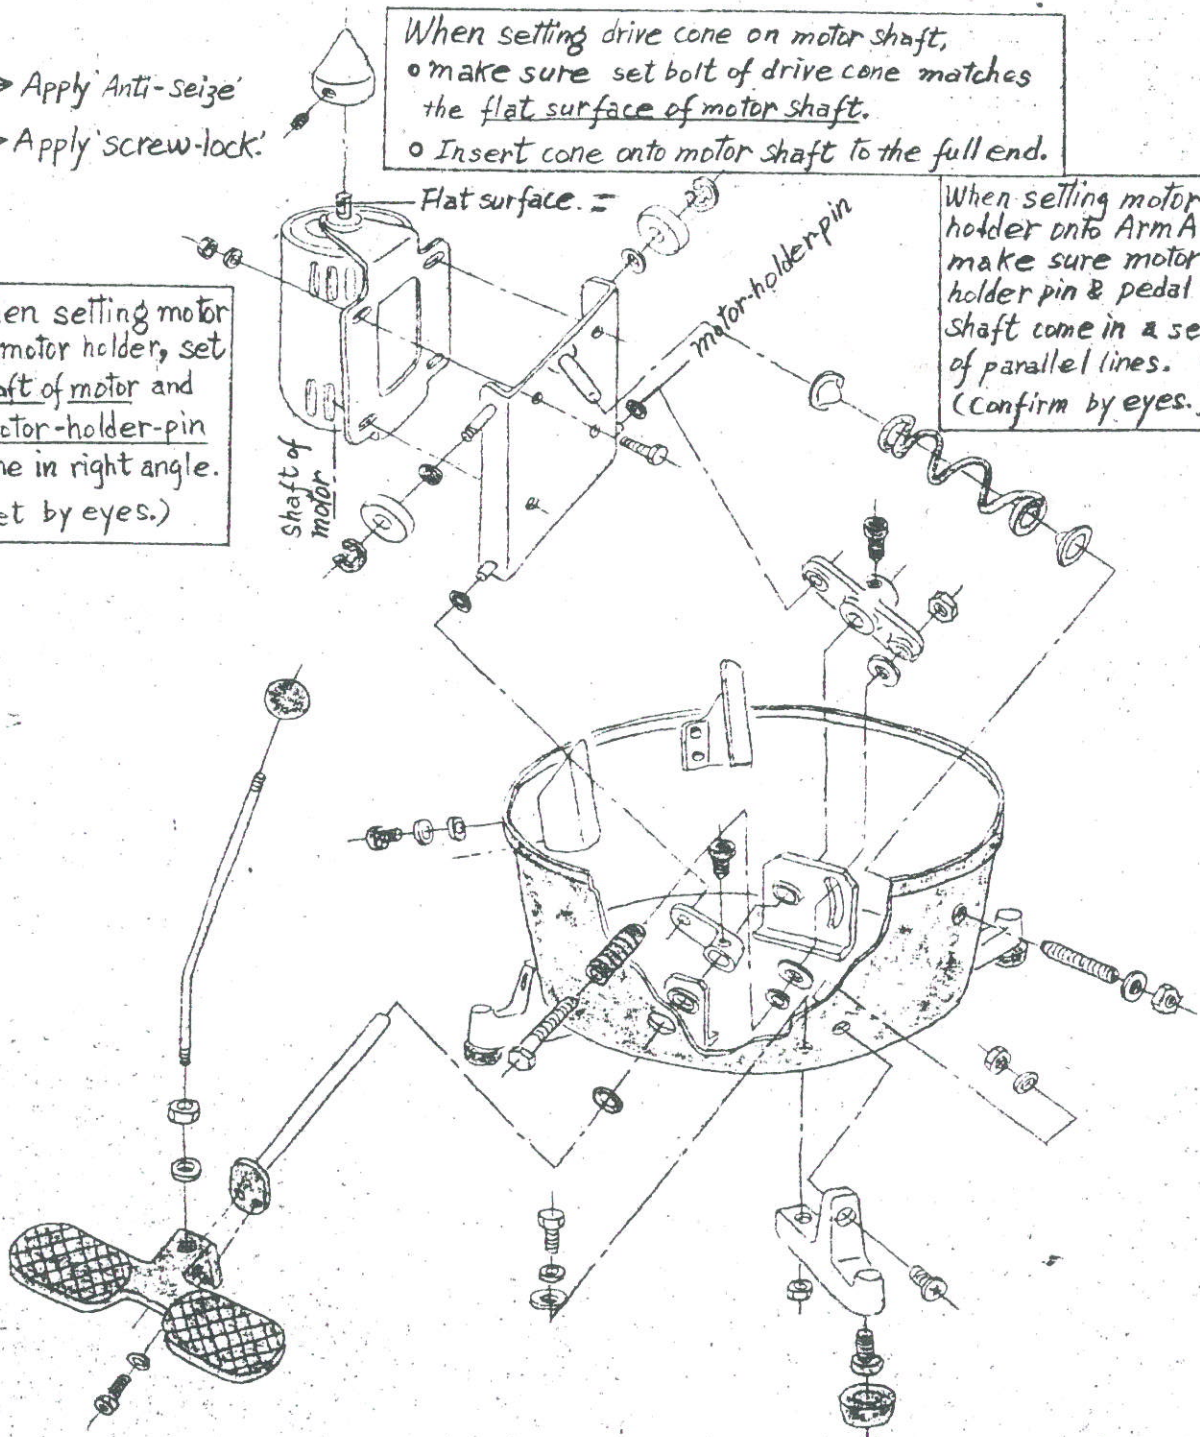 When setting drive cone on motor shaft,
○ make sure set bolt of drive cone matches
the flat surface of motor shaft.
○ Insert cone onto motor shaft to the full end.
Apply 'Anti-seize'
Apply 'screw-lock.'
Flat surface.
motor-holder-pin
When setting motor
holder onto Arm A
make sure motor
holder pin & pedal
shaft come in a se
of parallel lines.
(Confirm by eyes.
en setting motor
motor holder, set
aft of motor and
otor-holder-pin
me in right angle.
et by eyes.)
shaft of
motor